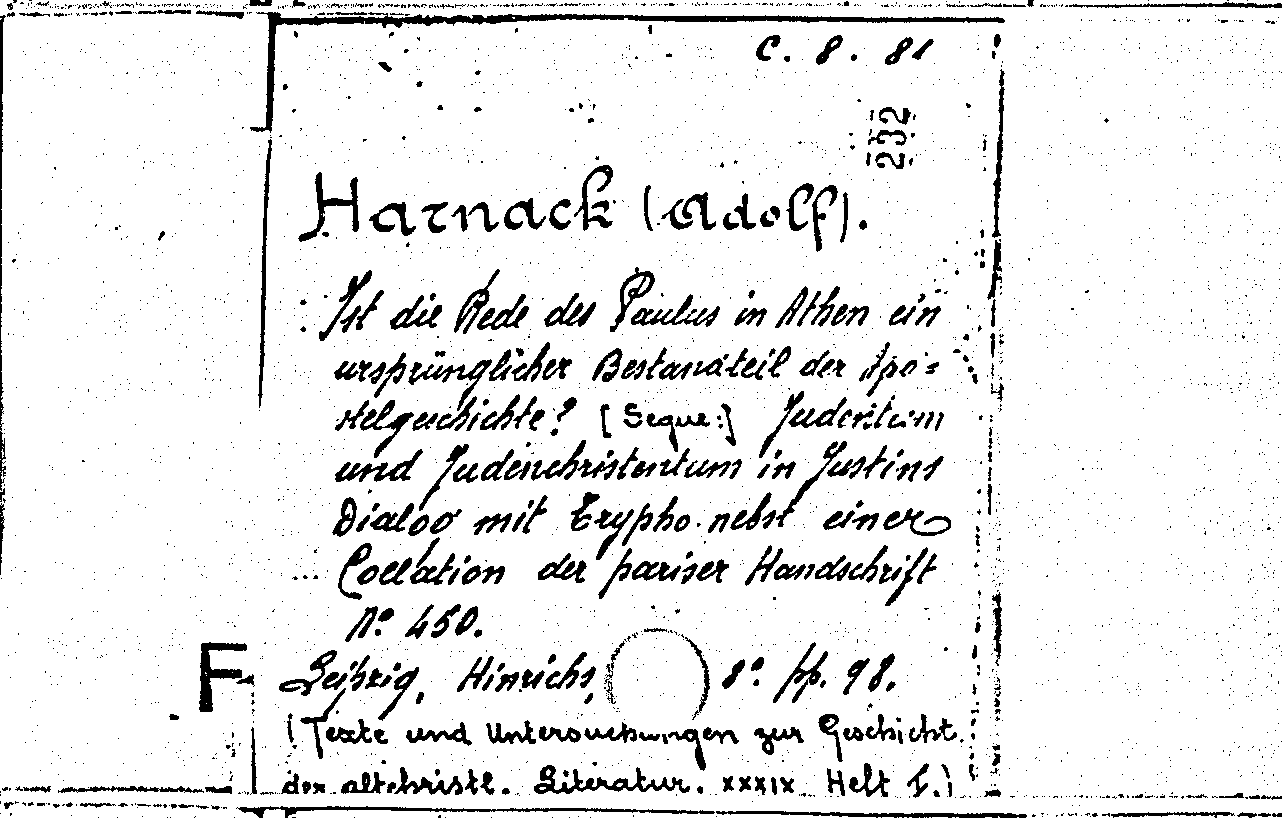 C. 8. 81
232
Harnack (Adolf).
Ist die Rede des Paulus in Athen ein
ursprünglicher Bestandteil der Apo=
stelgeschichte? [Segue:] Judentum
und Judenchristentum in Justins
Dialog mit Trypho nebst einer
Collation der pariser Handschrift
N° 450.
F
Leipzig, Hinrichs, 8° pp. 98.
(Texte und Untersuchungen zur Geschicht.
der altchristl. Literatur. XXXIX Heft 1.)